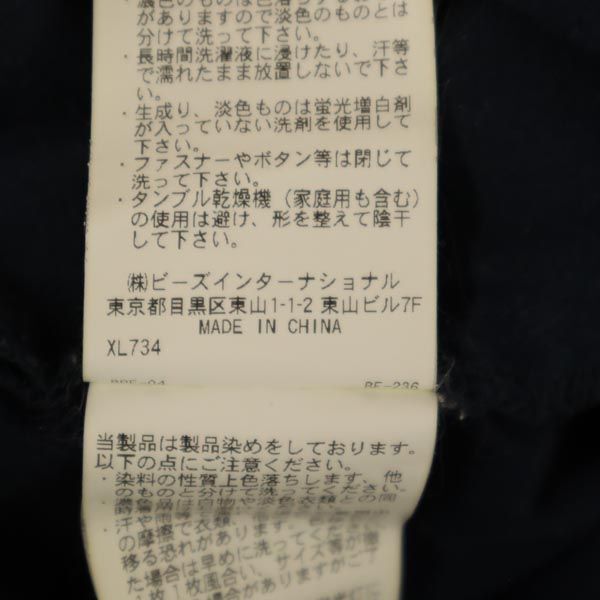 ・濃色のものは色落ちするお
がありますので淡色のものとは
分けて洗って下さい。
・長時間洗濯液に浸けたり、汗等
で濡れたまま放置しないで下さ
い。
・生成り、淡色ものは蛍光増白剤
が入っていない洗剤を使用して
下さい。
・ファスナーやボタン等は閉じて
洗って下さい。
・タンブル乾燥機（家庭用も含む）
の使用は避け、形を整えて陰干
して下さい。
㈱ビーズインターナショナル
東京都目黒区東山1-1-2 東山ビル7F
MADE IN CHINA
XL734
BE-236
当製品は製品染めをしております。
以下の点にご注意ください。
・染料の性質上色落ちします、他
のものと分けて洗ってください。
・濃色品は白物や淡色衣類との同
の摩擦で衣類
移る恐れがあります。
た場合は早めに洗って
、サイズ等が
枚1枚風合い、
場合がありますがご了